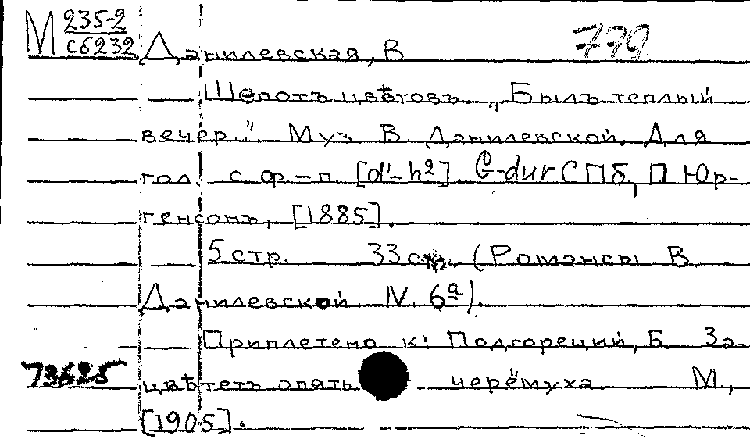 М 235-2
с6232 Данилевская, В 779
Шепотъ цвѣтовъ. „Былъ теплый
вечер.." Муз В Данилевской. Для
гол. с ф-п. [d'-h2] G-dur СПб, П Юр-
генсонъ, [1885].
5 стр. 33 см. (Романсы В
Данилевской N. 6а).
Приплетено к: Подгорецкий, Б За
73625 цвѣтетъ опять черёмуха М.,
[1905].